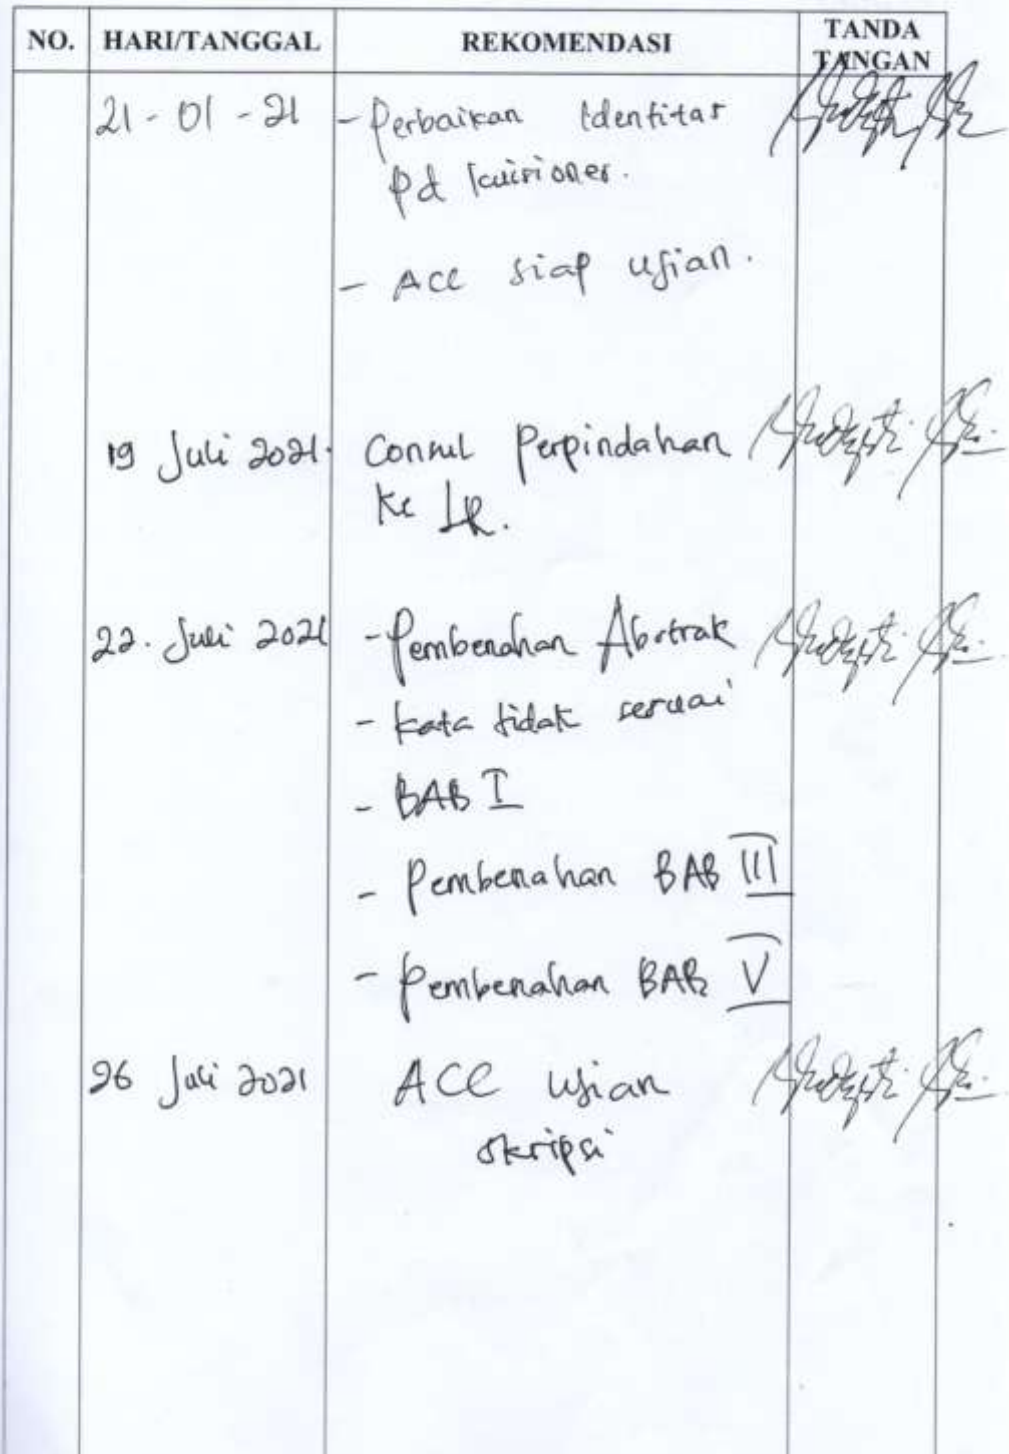 NO. HARI/TANGGAL REKOMENDASI TANDA TANGAN
21 - 01 - 21 - Perbaikan Identitas
pd kuisioner.
- ACC siap ujian.
19 Juli 2021 Consul Perpindahan
ke LR.
22. Juli 2021 - Pembenahan Abstrak
- kata tidak sesuai
- BAB I
- Pembenahan BAB III
- Pembenahan BAB V
26 Juli 2021 ACC ujian
skripsi